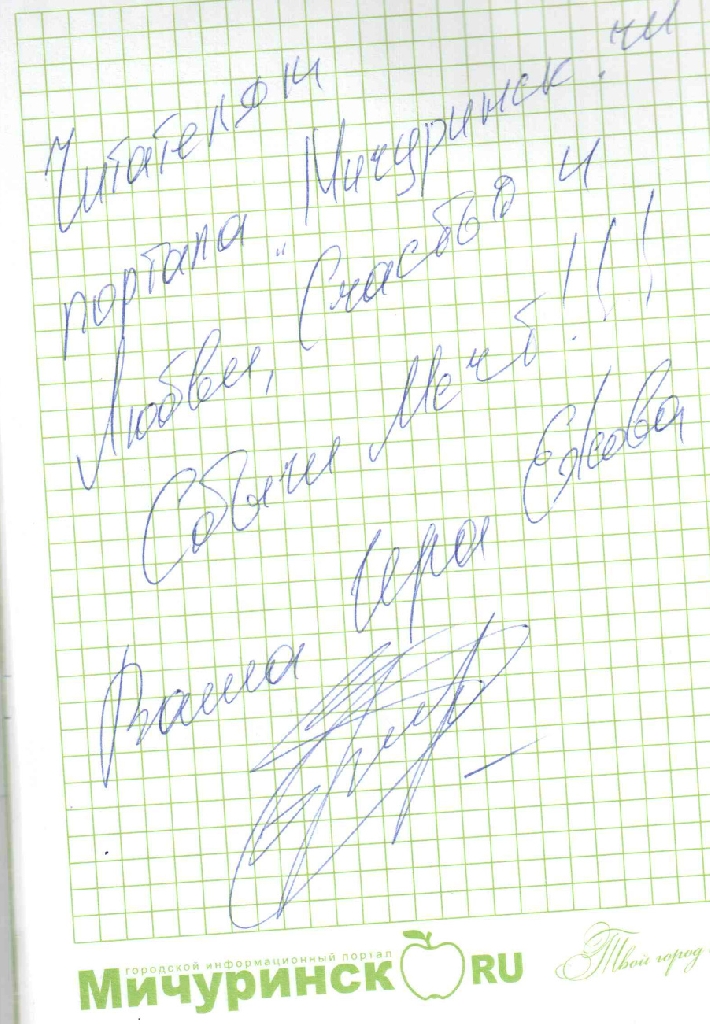 Читателям
портала „Мичуринск.ru
Любви, Счастья и
Сбычи Мечт!!!
Ваша Ира Ежова
городской информационный портал
Мичуринск RU
Твой город